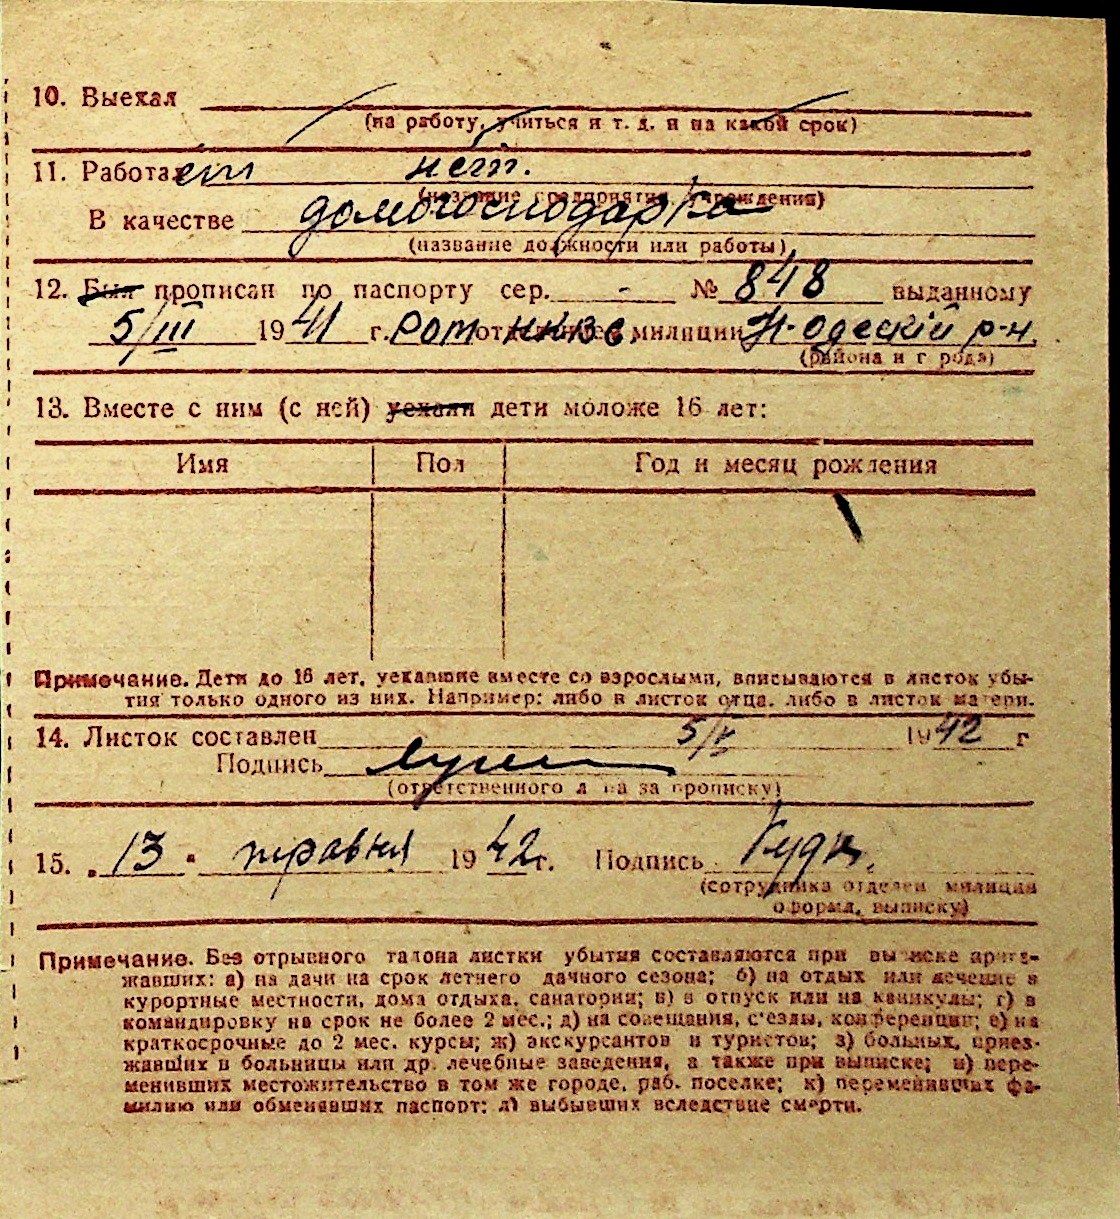 10. Выехал
(на работу, учиться и т. д. и на какой срок)
11. Работает нет.
(название предприятия, учреждения)
В качестве домогосподарка
(название должности или работы)
12. Был прописан по паспорту сер. - № 848 выданному
5/III 1941 г. РОМ НКВС. отделением милиции Н-Одескій р-н.
(района и города)
13. Вместе с ним (с ней) уехали дети моложе 16 лет:
Имя Пол Год и месяц рождения
Примечание. Дети до 16 лет, уехавшие вместе со взрослыми, вписываются в листок убы-
тия только одного из них. Например: либо в листок отца, либо в листок матери.
14. Листок составлен 5/V 1942 г
Подпись
(ответственного лица за прописку)
15. „13" травня 1942 г. Подпись
(сотрудника отделен. милиции
оформл. выписку)
Примечание. Без отрывного талона листки убытия составляются при выписке приез-
жавших: а) на дачи на срок летнего дачного сезона; б) на отдых или лечение в
курортные местности, дома отдыха, санатории; в) в отпуск или на каникулы; г) в
командировку на срок не более 2 мес.; д) на совещания, с'езды, конференции; е) на
краткосрочные до 2 мес. курсы; ж) экскурсантов и туристов; з) больных, приез-
жавших в больницы или др. лечебные заведения, а также при выписке; и) пере-
менивших местожительство в том же городе, раб. поселке; к) переменивших фа-
милию или обменявших паспорт; л) выбывших вследствие смерти.